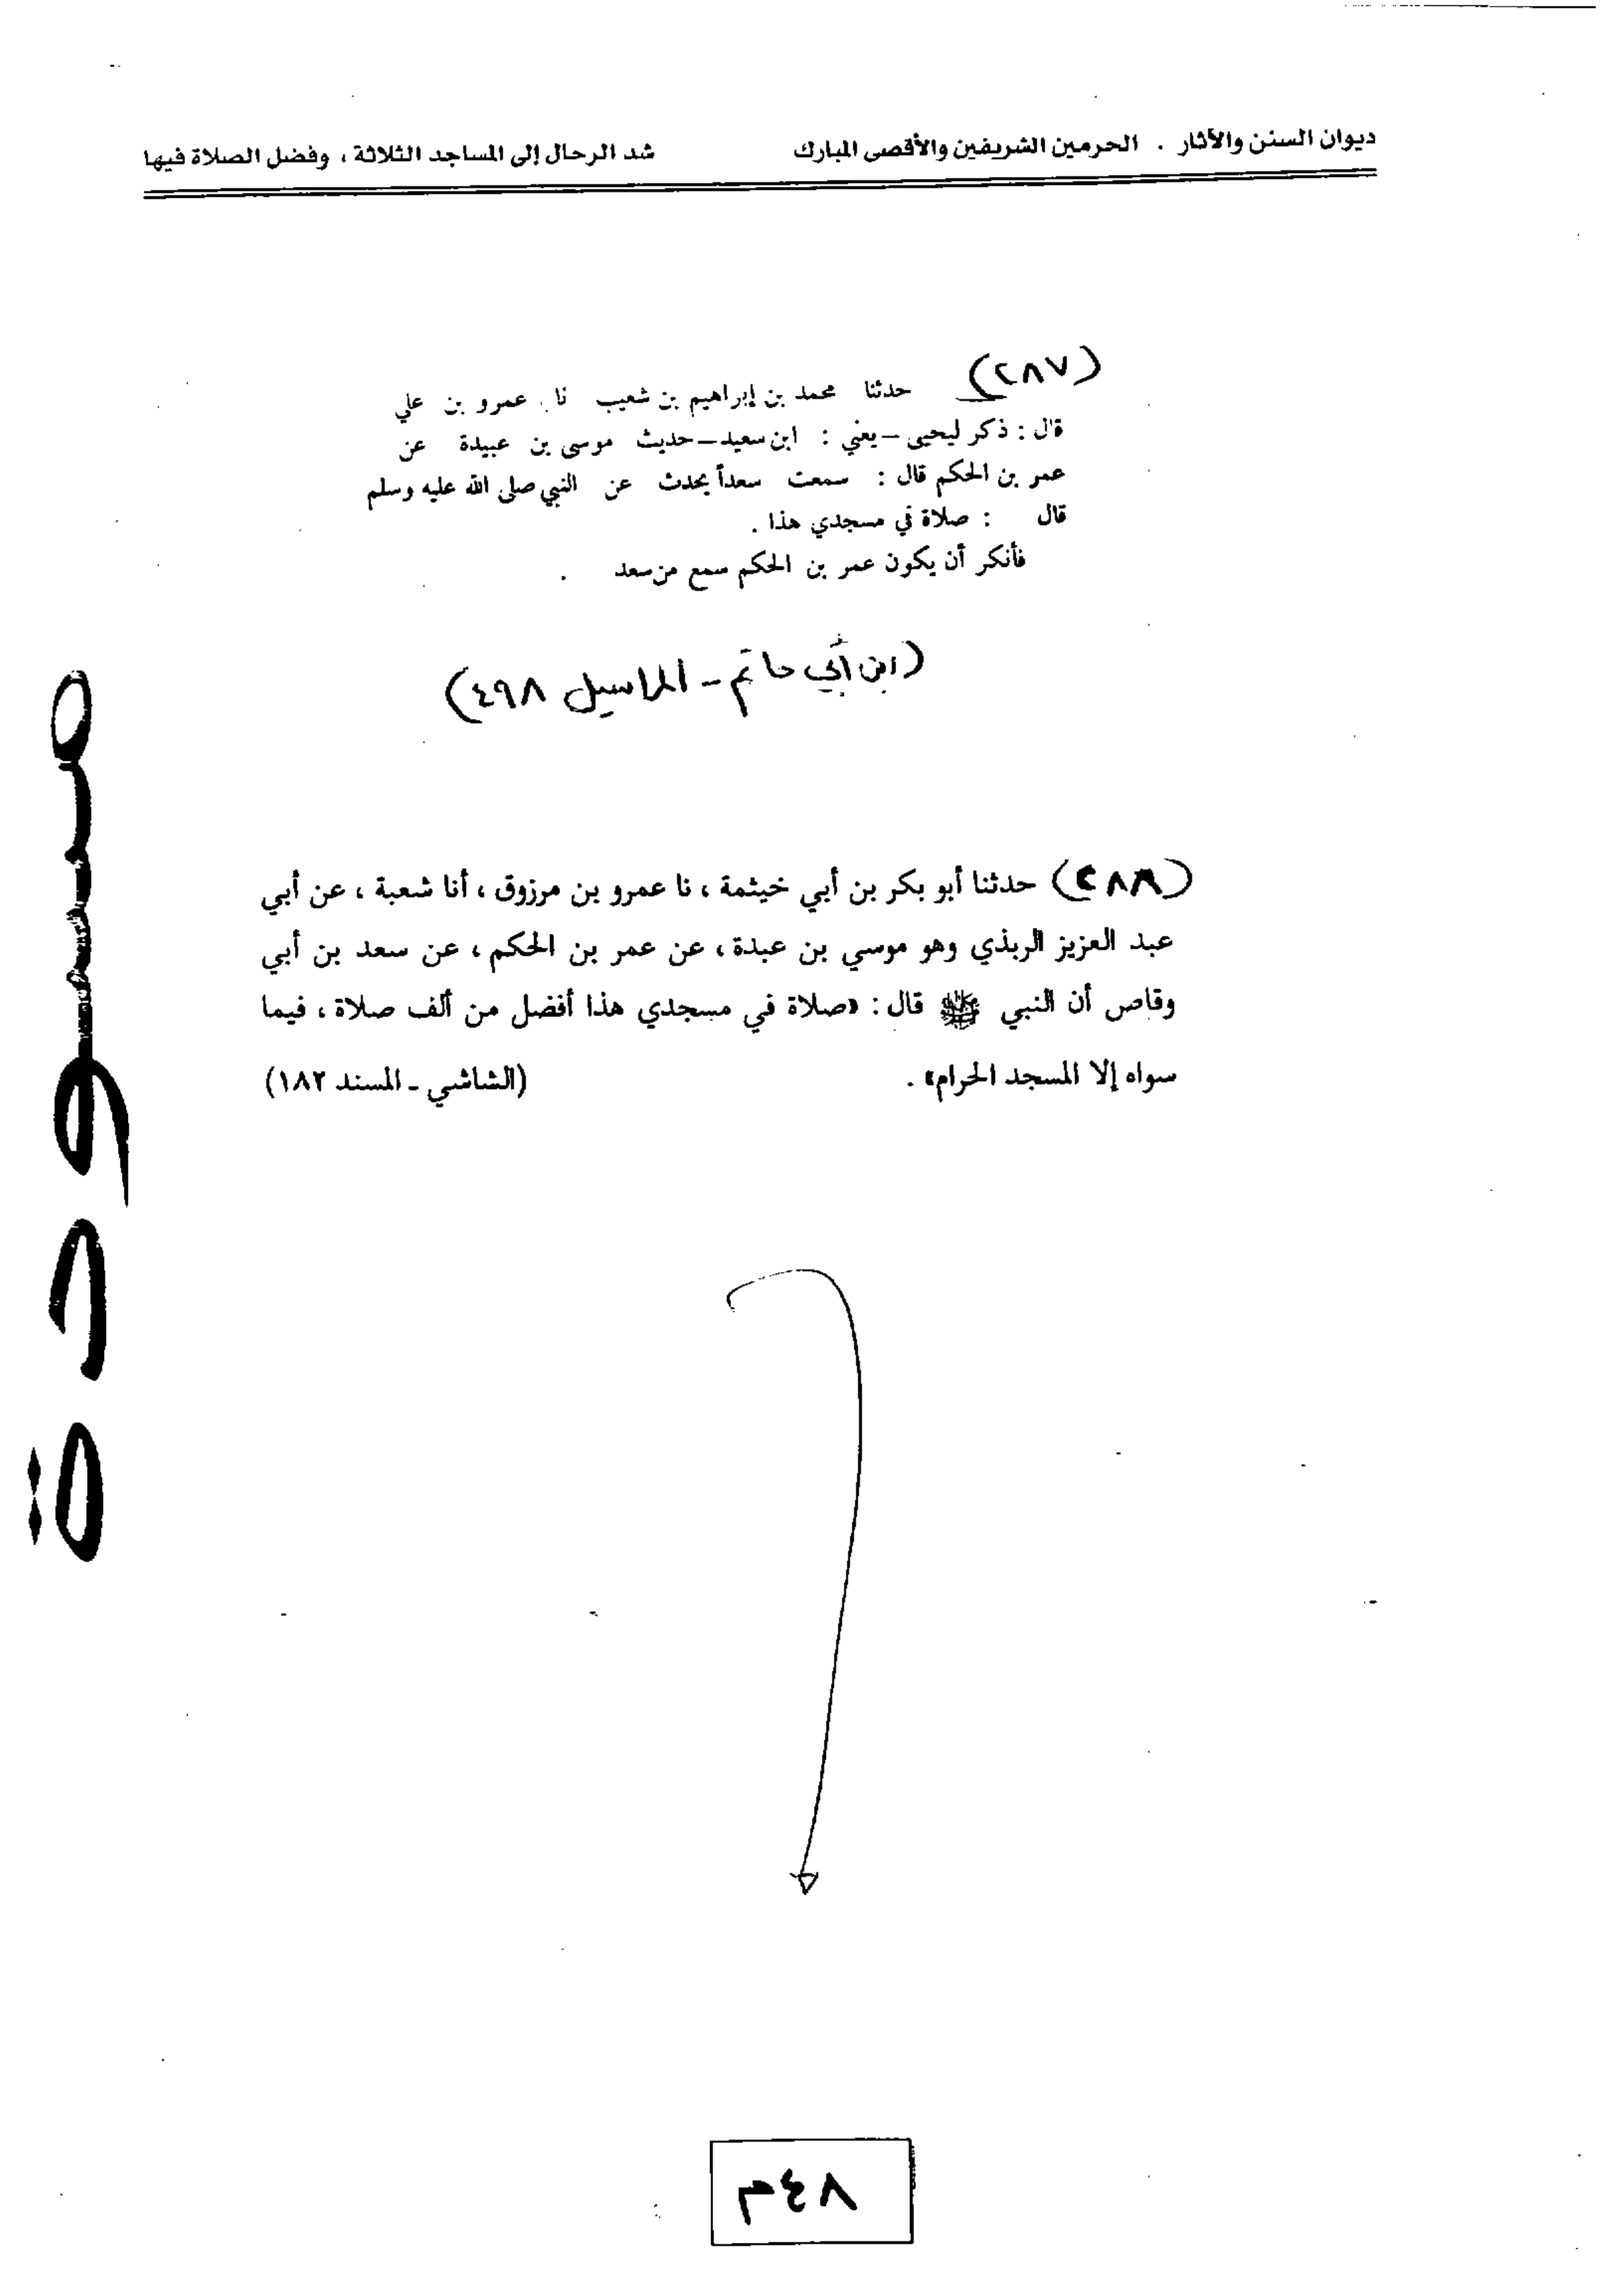 ديوان السنن والآثار . الحرمين الشريفين والأقصى المبارك شد الرحال إلى المساجد الثلاثة ، وفضل الصلاة فيها
(٢٨٧) حدثنا محمد بن إبراهيم بن شعيب نا عمرو بن علي
قال : ذكر ليحيى – يعني : ابن سعيد – حديث موسى بن عبيدة عن
عمر بن الحكم قال : سمعت سعداً يحدث عن النبي صلى الله عليه وسلم
قال : صلاة في مسجدي هذا .
فأنكر أن يكون عمر بن الحكم سمع من سعد .
(ابن أبي حاتم - المراسيل ٤٩٨)
(٢٨٨) حدثنا أبو بكر بن أبي خيثمة ، نا عمرو بن مرزوق ، أنا شعبة ، عن أبي
عبد العزيز الربذي وهو موسي بن عبدة ، عن عمر بن الحكم ، عن سعد بن أبي
وقاص أن النبي ﷺ قال : «صلاة في مسجدي هذا أفضل من ألف صلاة ، فيما
سواه إلا المسجد الحرام» . (الشاشي - المسند ١٨٢)
مسودة
٨٤م